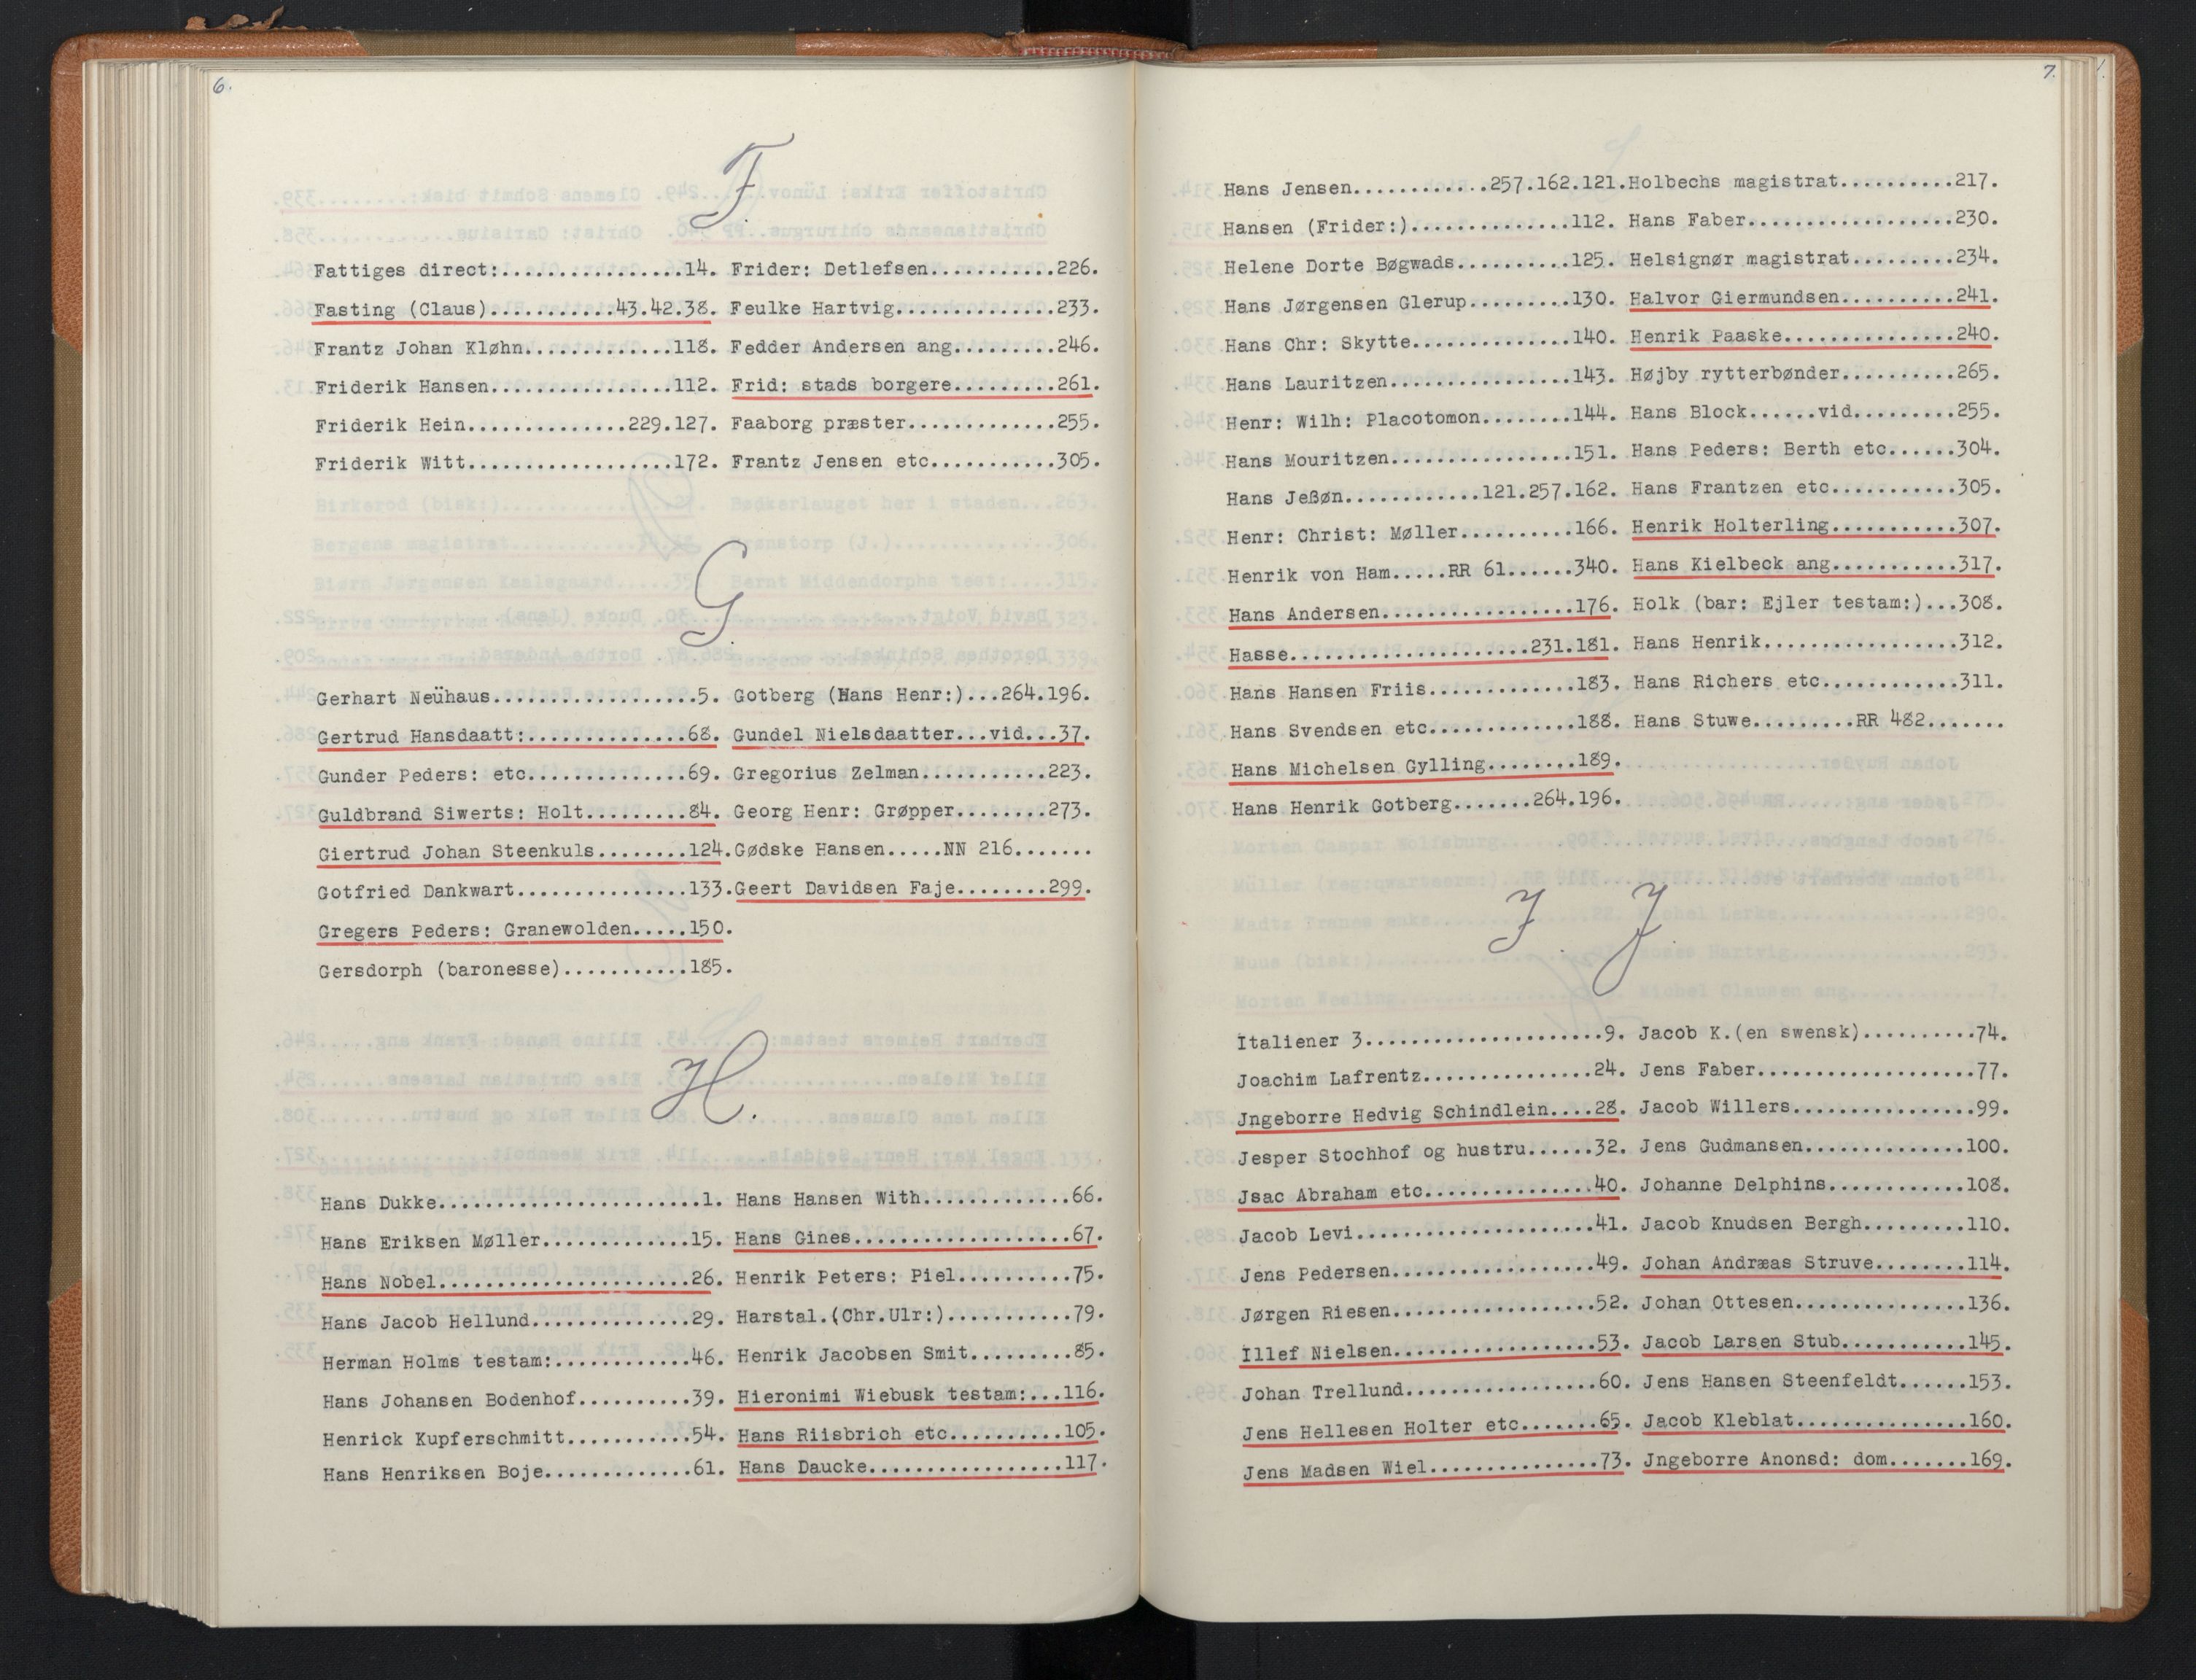 6.
F.
Fattiges direct:................14. Frider: Detlefsen...........226.
Fasting (Claus)...........43.42.38. Feulke Hartvig..............233.
Frantz Johan Kløhn.............118. Fedder Andersen ang.........246.
Friderik Hansen................112. Frid: stads borgere.........261.
Friderik Hein..............229.127. Faaborg præster.............255.
Friderik Witt..................172. Frantz Jensen etc...........305.
G.
Gerhart Neühaus..................5. Gotberg (Hans Henr:)...264.196.
Gertrud Hansdaatt:..............68. Gundel Nielsdaatter...vid...37.
Gunder Peders: etc..............69. Gregorius Zelman...........223.
Guldbrand Siwerts: Holt.........84. Georg Henr: Grøpper........273.
Giertrud Johan Steenkuls........124. Gødske Hansen.....NN 216.......
Gotfried Dankwart...............133. Geert Davidsen Faje........299.
Gregers Peders: Granewolden.....150.
Gersdorph (baronesse)...........185.
H.
Hans Dukke.......................1. Hans Hansen With.............66.
Hans Eriksen Møller.............15. Hans Gines...................67.
Hans Nobel......................26. Henrik Peters: Piel..........75.
Hans Jacob Hellund..............29. Harstal.(Chr.Ulr:)...........79.
Herman Holms testam:............46. Henrik Jacobsen Smit.........85.
Hans Johansen Bodenhof..........39. Hieronimi Wiebusk testam:...116.
Henrick Kupferschmitt...........54. Hans Riisbrich etc..........105.
Hans Henriksen Boje.............61. Hans Daucke.................117.
7.
Hans Jensen............257.162.121. Holbechs magistrat..........217.
Hansen (Frider:)..............112. Hans Faber..................230.
Helene Dorte Bøgwads..........125. Helsignør magistrat.........234.
Hans Jørgensen Glerup.........130. Halvor Giermundsen..........241.
Hans Chr: Skytte..............140. Henrik Paaske...............240.
Hans Lauritzen................143. Højby rytterbønder..........265.
Henr: Wilh: Placotomon........144. Hans Block......vid.........255.
Hans Mouritzen................151. Hans Peders: Berth etc......304.
Hans Jeßøn............121.257.162. Hans Frantzen etc...........305.
Henr: Christ: Møller..........166. Henrik Holterling...........307.
Henrik von Ham.....RR 61......340. Hans Kielbeck ang...........317.
Hans Andersen.................176. Holk (bar: Ejler testam:)...308.
Hasse.....................231.181. Hans Henrik.................312.
Hans Hansen Friis.............183. Hans Richers etc............311.
Hans Svendsen etc.............188. Hans Stuwe.........RR 482.......
Hans Michelsen Gylling........189.
Hans Henrik Gotberg.......264.196.
I. J.
Italiener 3.....................9. Jacob K.(en swensk)..........74.
Joachim Lafrentz...............24. Jens Faber...................77.
Jngeborre Hedvig Schindlein....28. Jacob Willers................99.
Jesper Stochhof og hustru......32. Jens Gudmansen..............100.
Jsac Abraham etc...............40. Johanne Delphins............108.
Jacob Levi.....................41. Jacob Knudsen Bergh.........110.
Jens Pedersen..................49. Johan Andræas Struve........114.
Jørgen Riesen..................52. Johan Ottesen...............136.
Illef Nielsen..................53. Jacob Larsen Stub...........145.
Johan Trellund.................60. Jens Hansen Steenfeldt......153.
Jens Hellesen Holter etc.......65. Jacob Kleblat...............160.
Jens Madsen Wiel...............73. Jngeborre Anonsd: dom.......169.